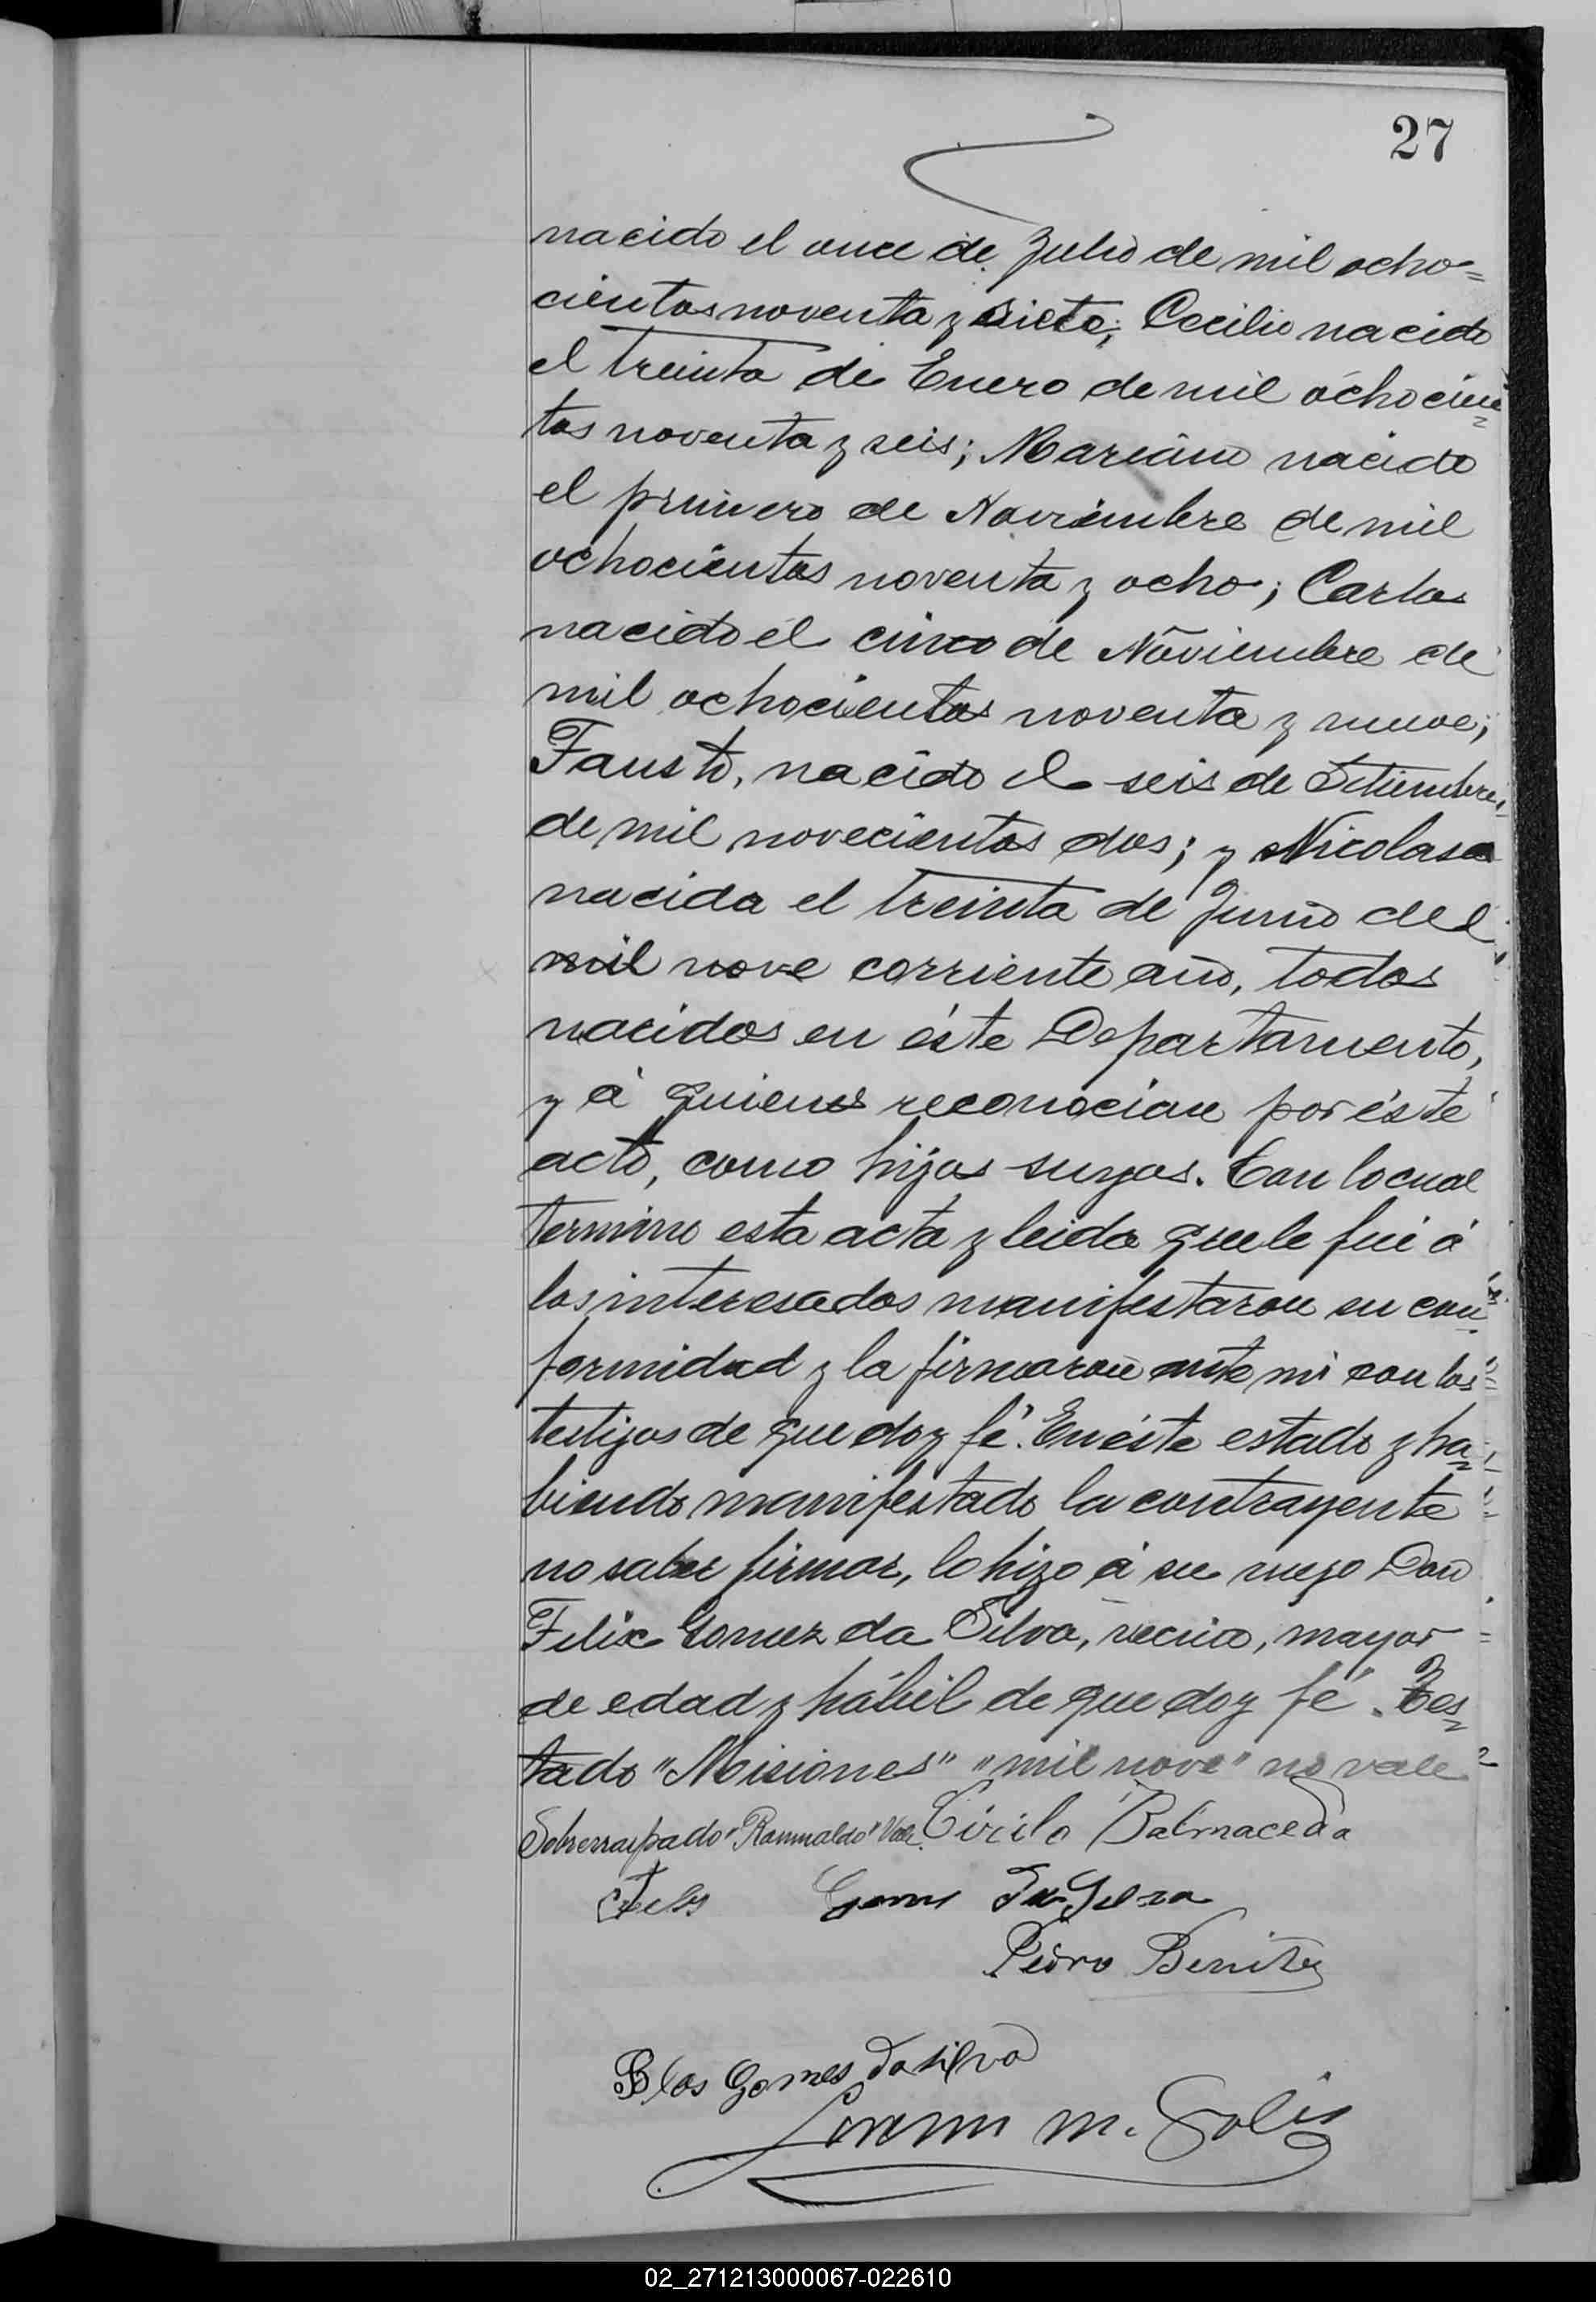 27
nacido el once de Julio de mil ocho=
cientos noventa y siete; Cecilio nacido
el treinta de Enero de mil ochocien=
tos noventa y seis; Mariano nacido
el primero de Noviembre de mil
ochocientos noventa y ocho; Carlos
nacido el cinco de Noviembre de
mil ochocientos noventa y nueve;
Fausto, nacido el seis de Setiembre
de mil novecientos dos; y Nicolasa
nacida el treinta de Junio del
mil nove corriente año, todos
nacidos en éste Departamento,
y á quienes reconocian por éste
acto, como hijos suyos. Con lo cual
termino esta acta y leida que le fué á
los interesados manifestaron su con=
formidad y la firmaron ante mi con los
testigos de que doy fé. En éste estado y ha=
biendo manifestado la contrayente
no saber firmar, lo hizo á su ruego Don
Felix Gomez da Silva, vecino, mayor
de edad y hábil de que doy fé. Tes=
tado "Misiones" "mil nove" no vale
Sobrerraspado "Romualdo" Vale. Cirilo Balmaceda
Felis Gomes Da Silva
Pedro Benitez
Blas Gomes da silva
M. Solis
02_271213000067-022610